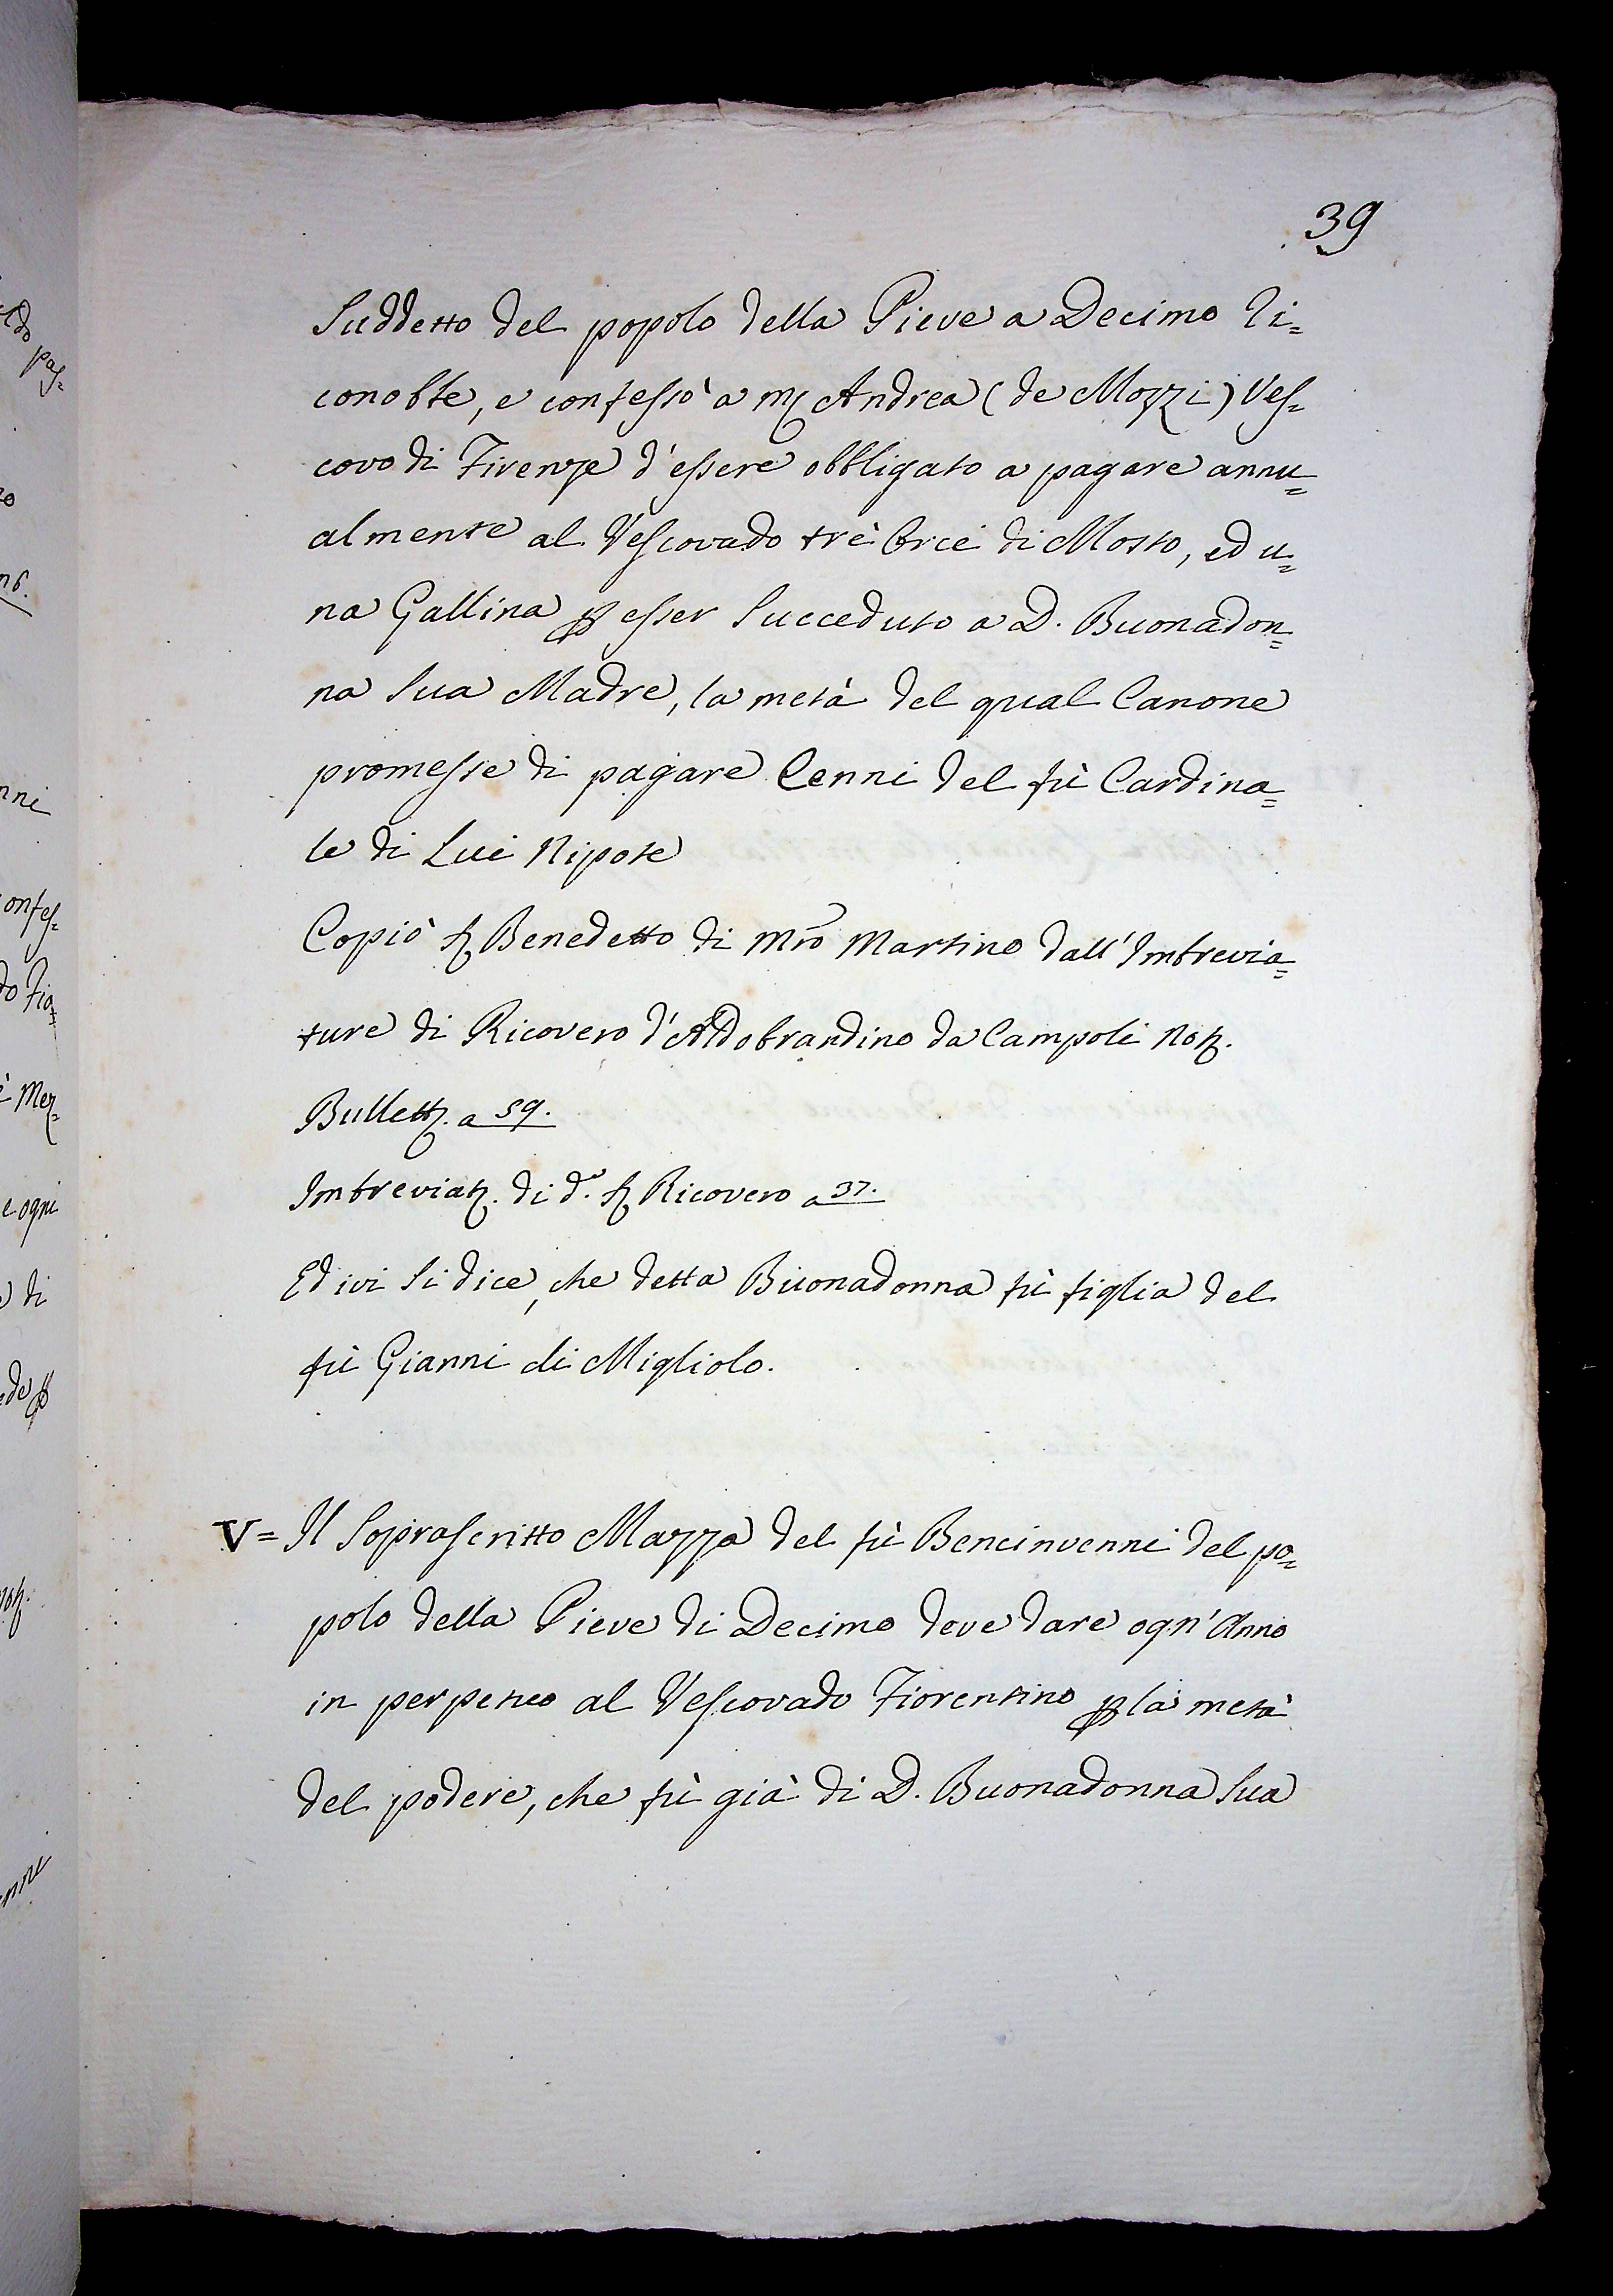 39
Suddetto del popolo della Pieve a Decimo ri=
conobbe, e confessò a mſ Andrea (de Mozzi) Ves=
covo di Firenze d'essere obbligato a pagare annu=
almente al Vescovado trè Orcie di Mosto, ed u=
na Gallina ꝑ esser Succeduto a D. Buonadon=
na Sua Madre, la metà del qual Canone
promesse di pagare Cenni del fù Cardina=
le di Lui Nipote
Copiò Benedetto di Mro Martino dall'Imbrevia=
ture di Ricovero d'Aldobrandino da Campoli Notſ.
Bullettſ. a 59.
Imbreviatſ. di d.º Ricovero a 37.
Ed ivi Si dice, che detta Buonadonna fù figlia del
fù Gianni di Migliolo.
V= Il Soprascritto Mazza del fù Bencinvenni del po=
polo della Pieve di Decimo deve dare ogn'Anno
in perpetuo al Vescovado Fiorentino ꝑ la metà
del podere, che fù già di D. Buonadonna Sua
pas=
nni
onfes=
do Fio=
è Mez=
e ogni
di